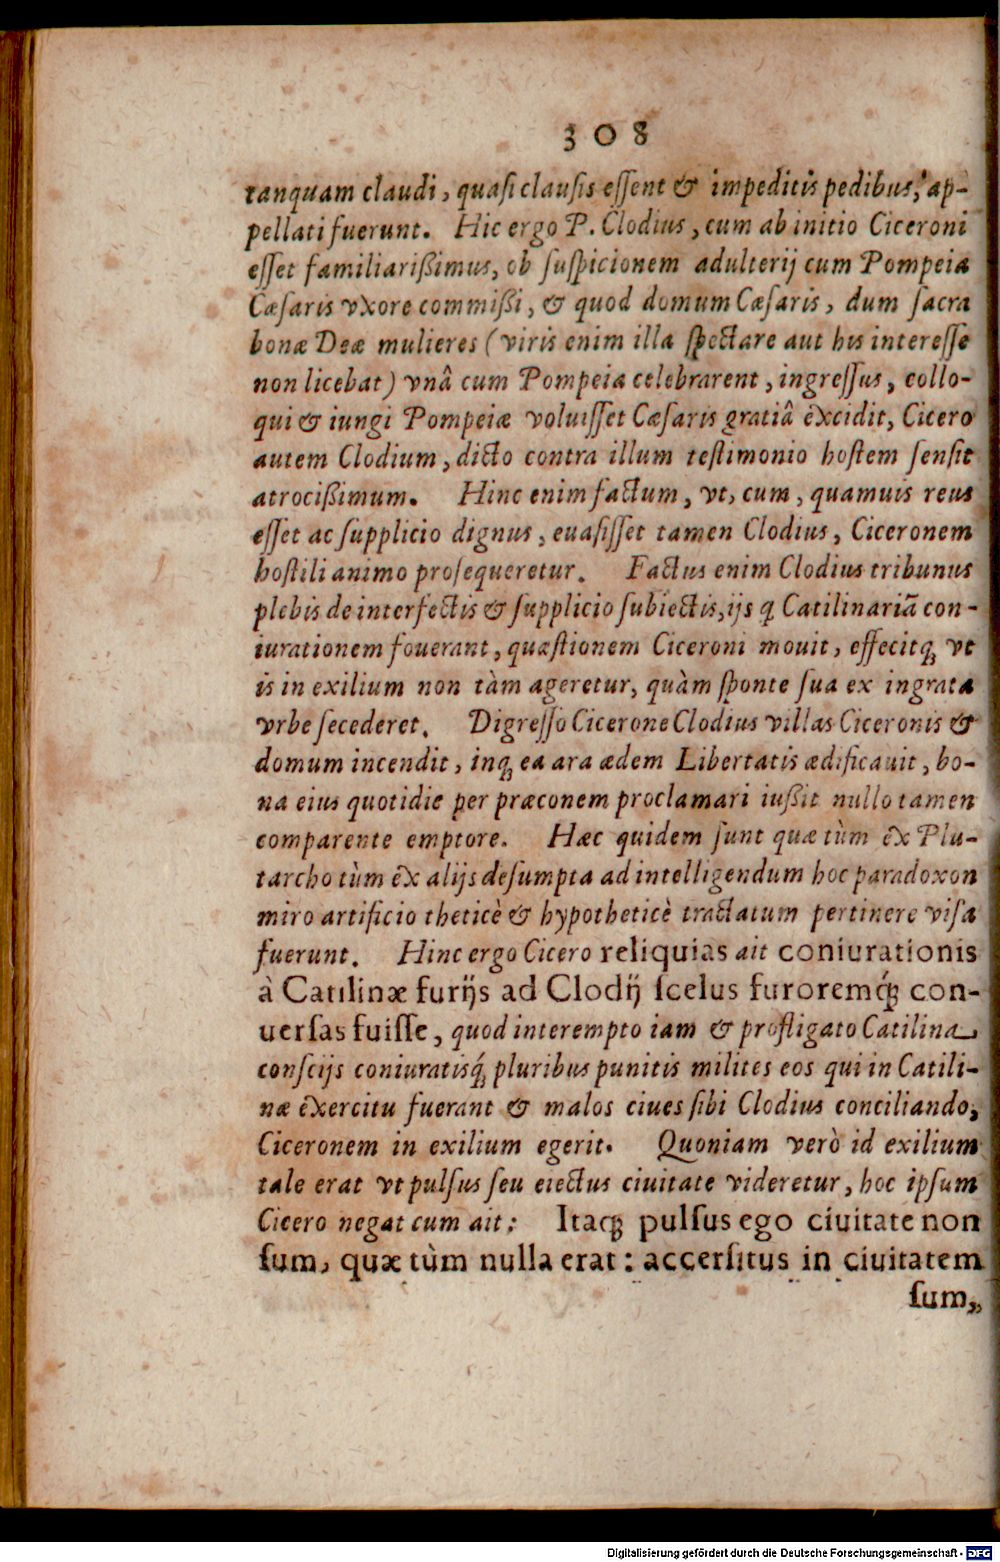 308
tanquam claudi, quaſi clauſis eſſent & impeditis pedibus, ap-
pellati fuerunt. Hic ergo P. Clodius, cum ab initio Ciceroni
eſſet familiarißimus, ob ſuſpicionem adulterij cum Pompeia
Cæſaris vxore commißi, & quod domum Cæſaris, dum ſacra
bonæ Deæ mulieres (viris enim illa ſpectare aut his intereſſe
non licebat) vnâ cum Pompeia celebrarent, ingreſſus, collo-
qui & iungi Pompeiæ voluiſſet Cæſaris gratiâ êxcidit, Cicero
autem Clodium, dicto contra illum teſtimonio hoſtem ſenſit
atrocißimum. Hinc enim factum, vt, cum, quamuis reus
eſſet ac ſupplicio dignus, euaſiſſet tamen Clodius, Ciceronem
hoſtili animo proſequeretur. Factus enim Clodius tribunus
plebis de interfectis & ſupplicio ſubiectis, ijs q Catilinariã con-
iurationem fouerant, quæſtionem Ciceroni mouit, effecitq́; vt
is in exilium non tàm ageretur, quàm ſponte ſua ex ingrata
vrbe ſecederet. Digreſſo Cicerone Clodius villas Ciceronis &
domum incendit, inq́; ea ara ædem Libertatis ædificauit, bo-
na eius quotidie per præconem proclamari iußit nullo tamen
comparente emptore. Hæc quidem ſunt quæ tùm êx Plu-
tarcho tùm êx alijs deſumpta ad intelligendum hoc paradoxon
miro artificio theticè & hypotheticè tractatum pertinere viſa
fuerunt. Hinc ergo Cicero reliquias ait coniurationis
à Catilinæ furijs ad Clodij ſcelus furoremq́; con-
uerſas fuiſſe, quod interempto iam & profligato Catilina
conſcijs coniuratisq́; pluribus punitis milites eos qui in Catili-
næ êxercitu fuerant & malos ciues ſibi Clodius conciliando,
Ciceronem in exilium egerit. Quoniam verò id exilium
tale erat vt pulſus ſeu eiectus ciuitate videretur, hoc ipſum
Cicero negat cum ait: Itaq; pulſus ego ciuitate non
ſum, quæ tùm nulla erat: accerſitus in ciuitatem
ſum,
Digitalisierung gefördert durch die Deutsche Forschungsgemeinschaft - DFG